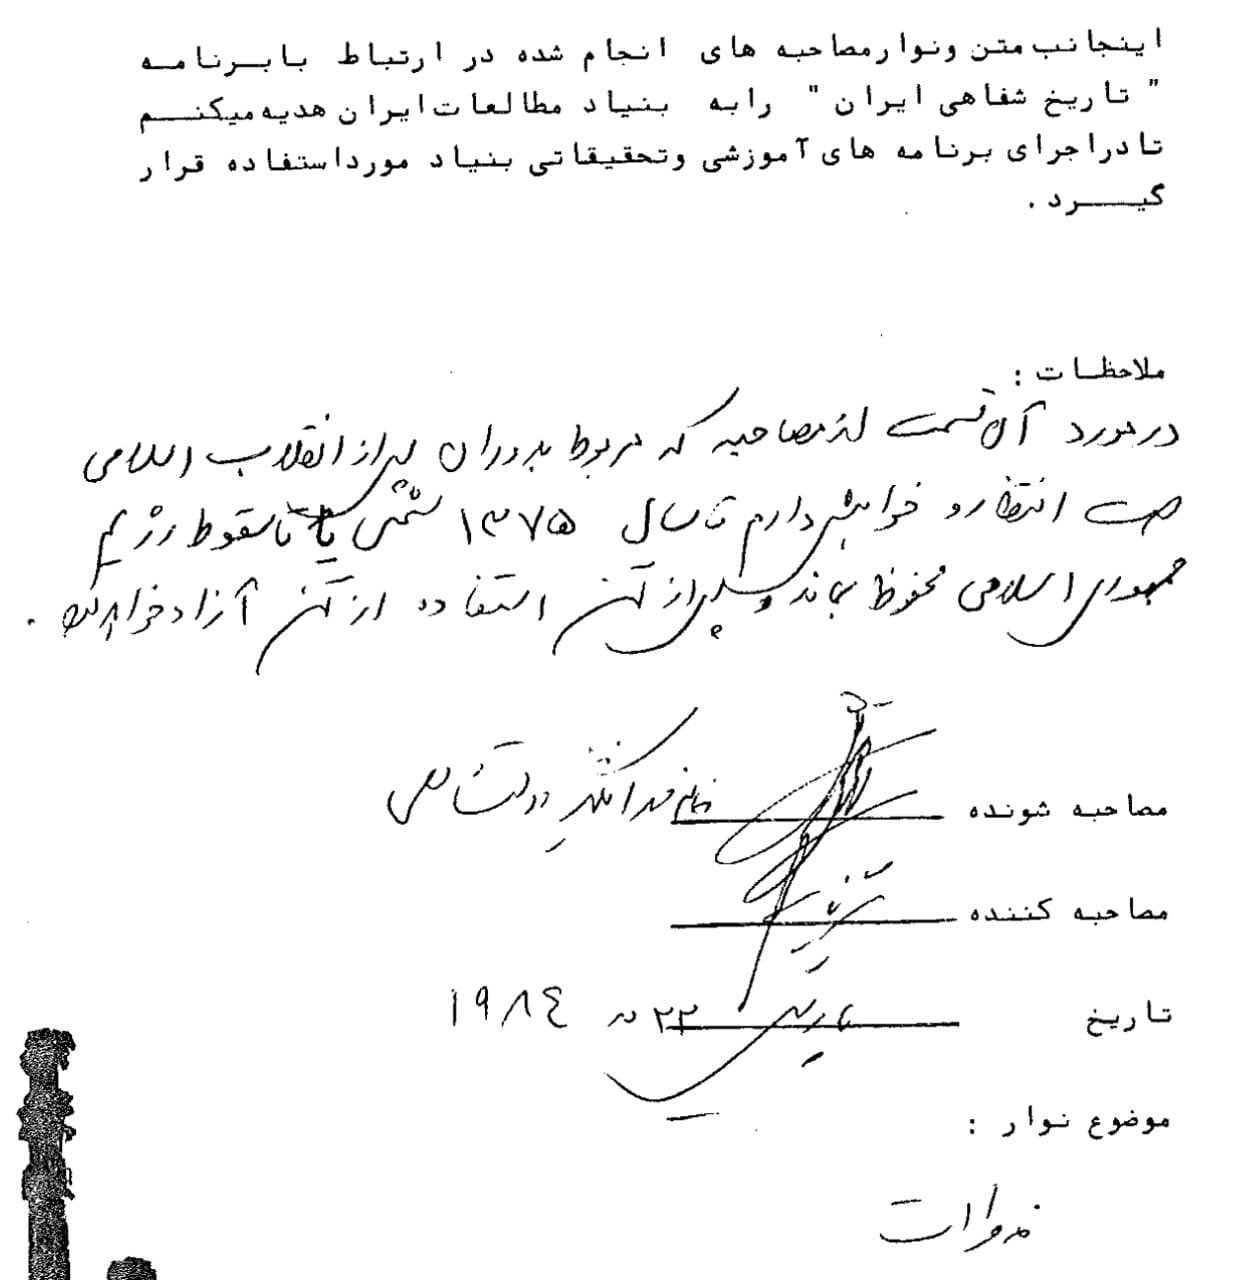 اینجانب متن ونوارمصاحبه های انجام شده در ارتباط بابرنامه
" تاریخ شفاهی ایران " رابه بنیاد مطالعات ایران هدیه میکنم
تادراجرای برنامه های آموزشی وتحقیقاتی بنیاد مورداستفاده قرار
گیرد .
ملاحظات :
درمورد آن قسمت از مصاحبه که مربوط بدوران پس از انقلاب اسلامی
است انتظار و خواهش دارم تا سال ۱۳۷۵ شمسی یا تا سقوط رژیم
جمهوری اسلامی محفوظ بماند و پس از آن استفاده از آن آزاد خواهد بود .
مصاحبه شونده
مصاحبه کننده
تاریخ پاریس ۲۲ مه ۱۹۸٤
موضوع نوار :
خاطرات